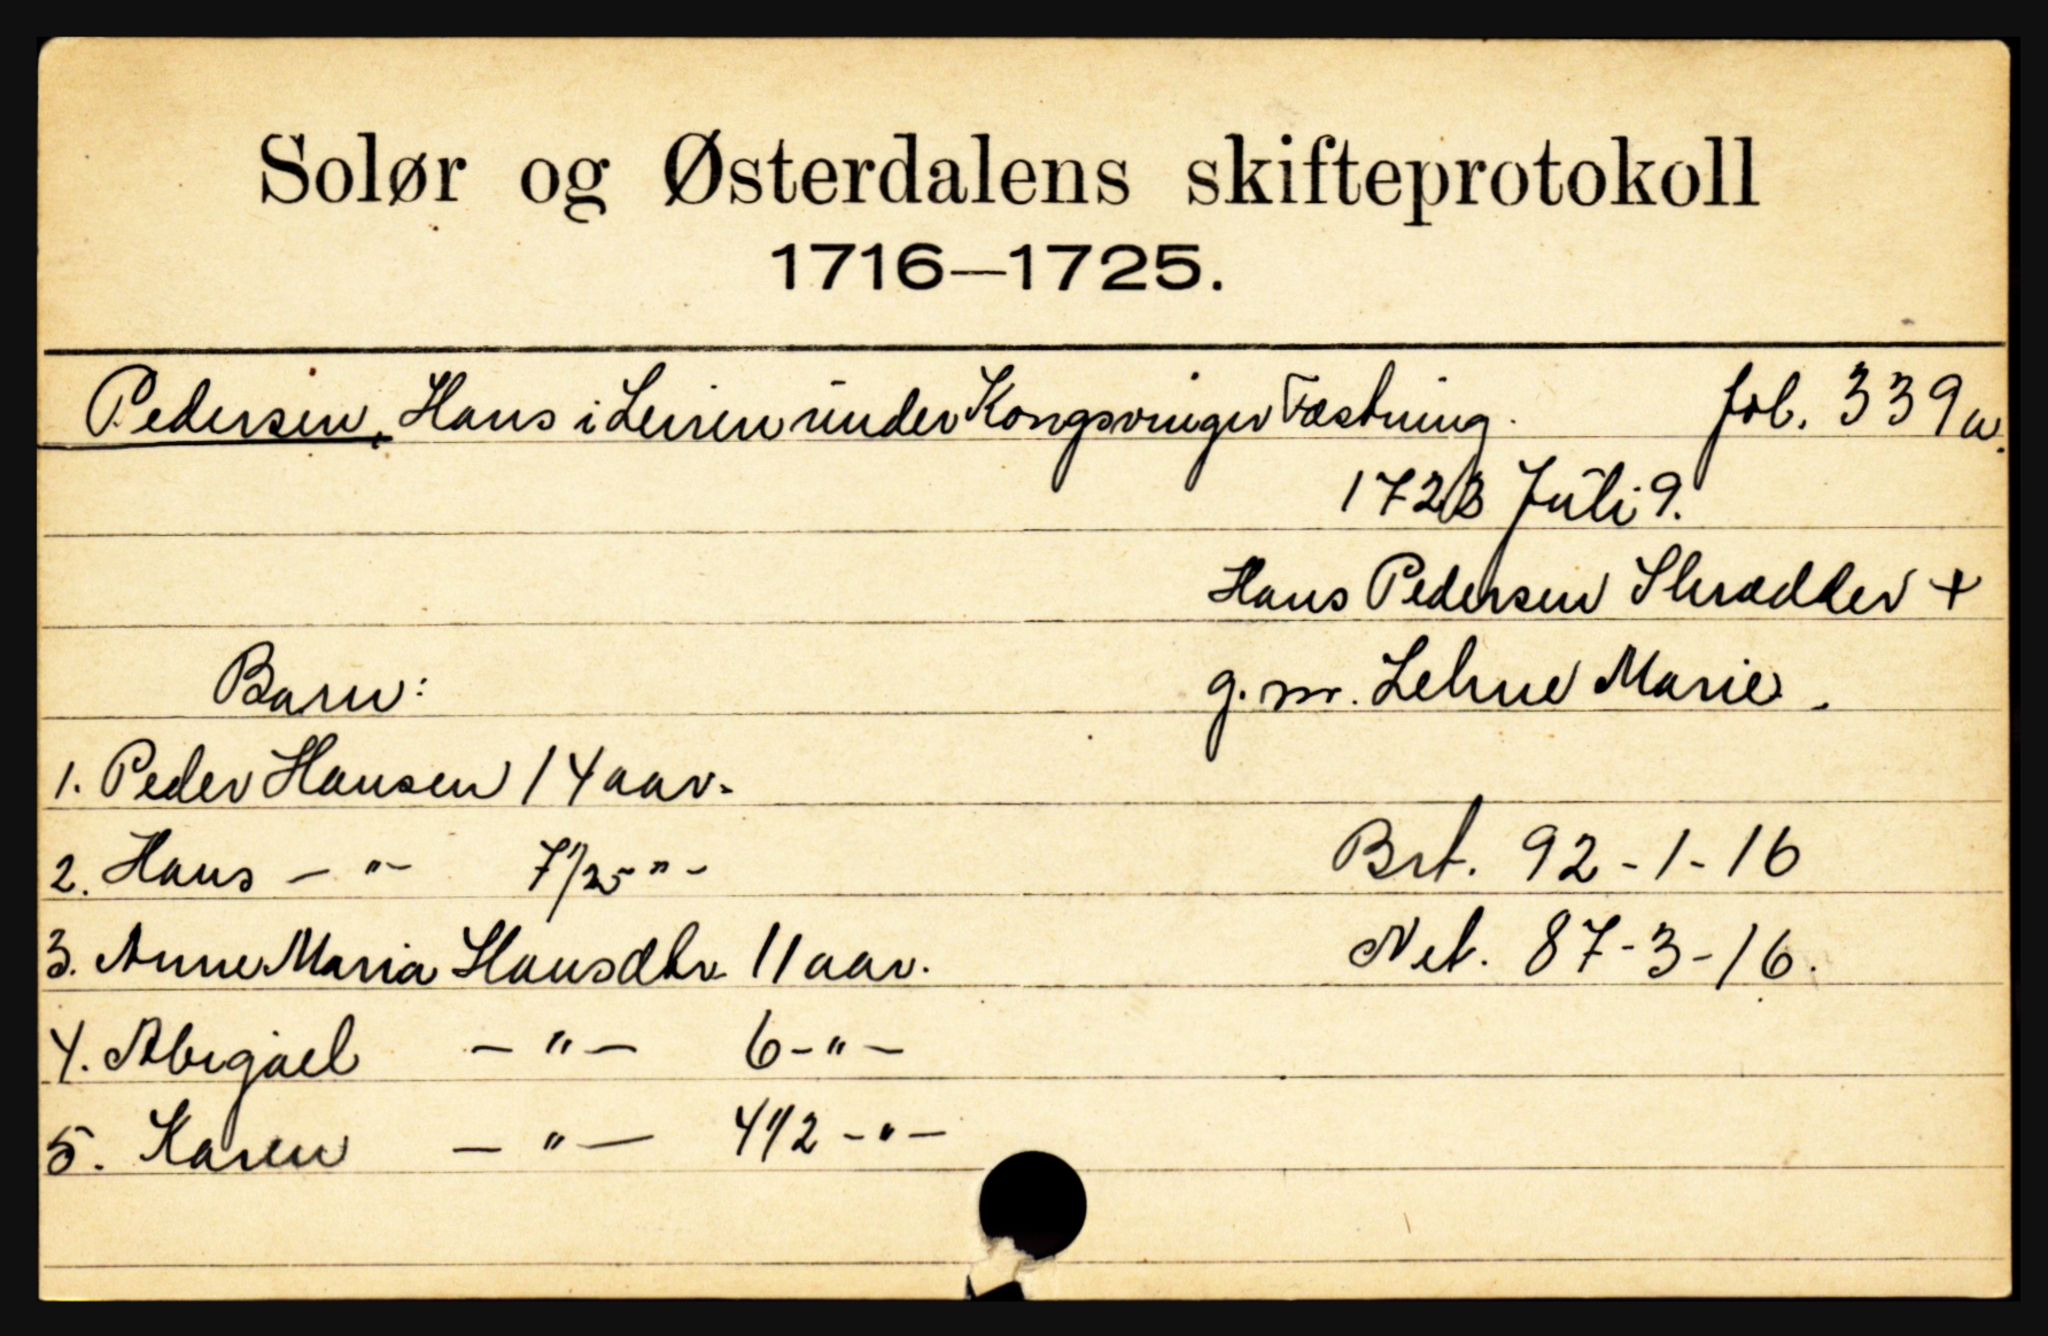 Solør og Østerdalens skifteprotokoll
1716—1725.
Pedersen, Hans i Leiren under Kongsvinger Fæstning. fol. 339a.
1723 Juli 9.
Hans Pedersen Skrædder +
Barn: g. m. Lehne Marie.
1. Peder Hansen 14 aar.
2. Hans — " — " - Brt. 92-1-16
3. Anne Maria Hansdtr. 11 aar. Net. 87-3-16.
4. Abigael — " — 6 - " —
5. Karen — " — 4 1/2 - " —